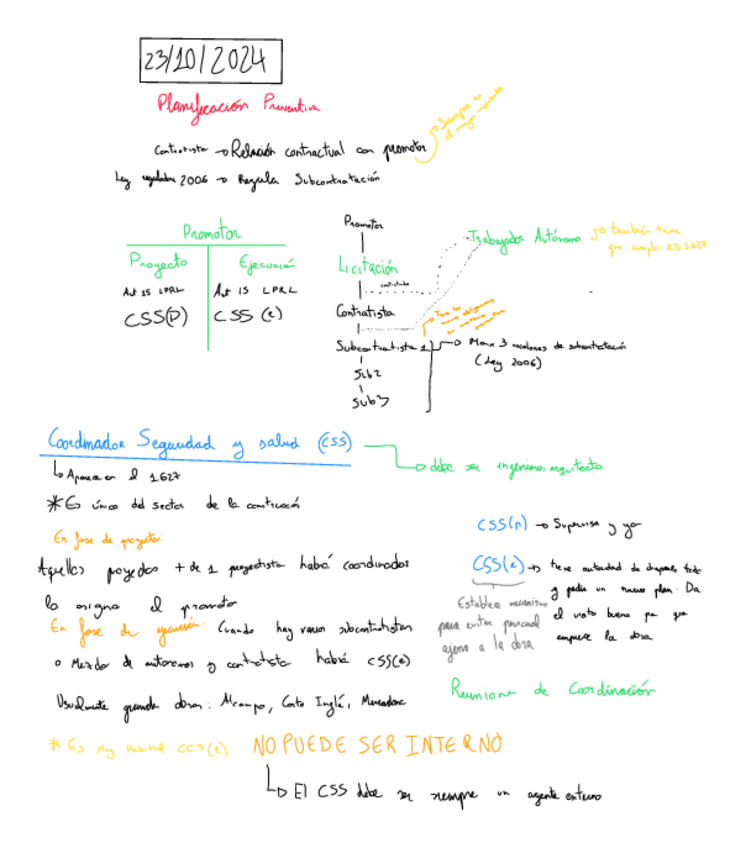 23/10/2024
Planificación Preventiva
Siempre es el mayor
Contratista → Relación contractual con promotor
Ley reguladora 2006 → Regula Subcontratación
Promotor
Proyecto
Ejecución
Art 15 LPRL
Art 15 LPRL
CSS(P)
CSS (e)
Promotor
Licitación
contratista
Contratista
Subcontratista 1
Sub2
Sub3
Trabajador Autónomo
también tiene que cumplir RD 1627
Max 3 escalones de subcontratación
(Ley 2006)
Coordinador Seguridad y salud (CSS)
debe ser ingeniero, arquitecto
Aparece en el 1627
* Es único del sector de la construcción
En fase de proyecto:
Aquellos proyectos + de 1 proyectista habrá coordinador
lo asigna el promotor
En fase de ejecución: Cuando hay varios subcontratistas
o Mezcla de autonomos y contratista habrá CSS(e)
Usualmente grande obras: Alcampo, Corte Inglé, Mercadona
* Es Muy Habitual CCS(e)
NO PUEDE SER INTERNO
El CSS debe ser siempre un agente externo
CSS(p) → Supervisa y ya
CSS(e) → tiene autoridad de todo
y pedir un nuevo plan. Da
el visto bueno pa que
empiece la obra
Establece mecanismo
para evitar personal
ajeno a la obra
Reunione de Coordinación